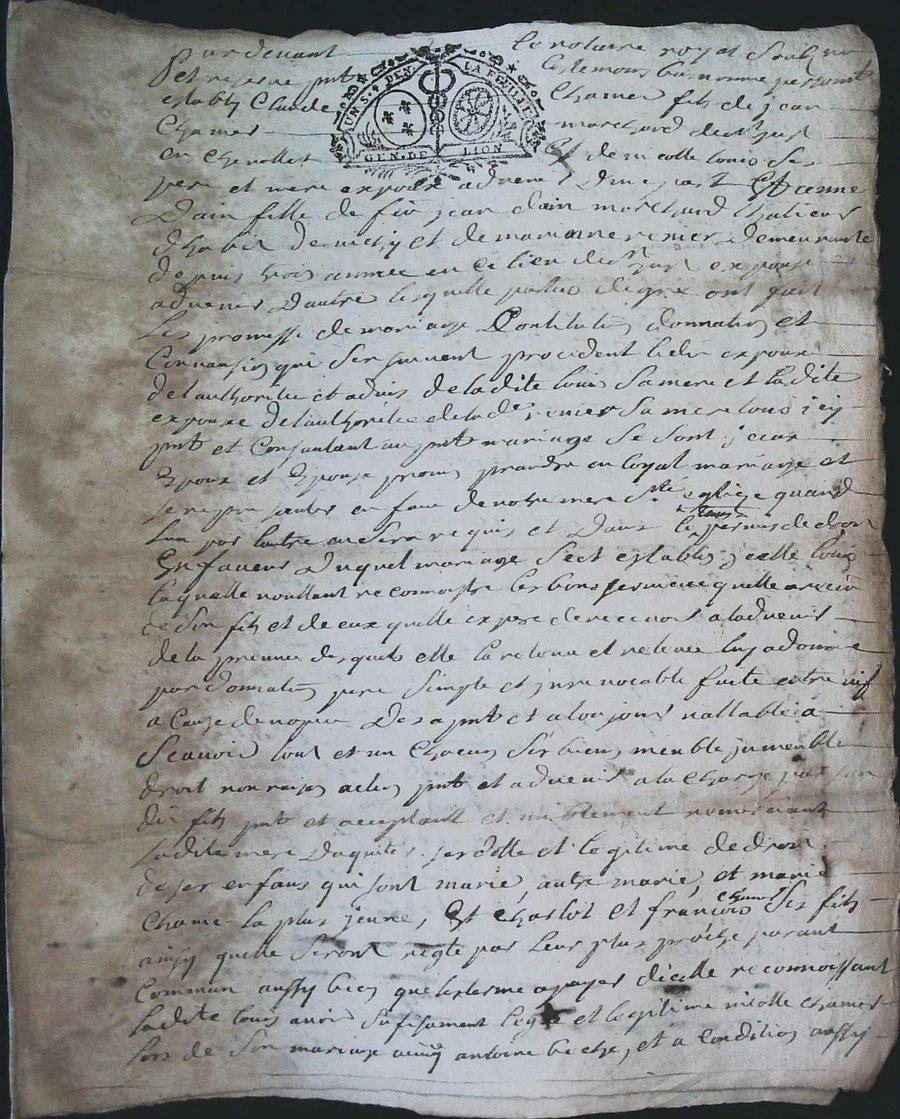 pardevant le notaire royal soubz
et reserve pnt les temoins bas nommé
AUN S. 4 DEN. LA FEUILLE
GEN. DE LION
estably Claude Chamer fils de jean
Chamer marchand de St just
en chevallet et de nicolle louis ses
pere et mere expoux advenir d'une part Et anne
Dain fille de fû jean dain marchand
et de marianne renier demeurante
depuis trois année en ce lieu de St just expouse
advenir d'autre lesquelle parties de gré ont fait
Les promesse de mariage Constitution donnation et
Convansion qui sensuivent procedent ledit expoux
de l'authorité et advis de ladite louis sa mere et ladite
expouse de l'authorité de lad.e renier sa mere tous icy
pnt et Consantant au pnt mariage se sont iceux
Epoux et Epouse promis prandre en loyal mariage et
se represanter en face de notre mere Ste eglize quand
lun par lautre en sera requis et dans le tans permis de droit
En faveur duquel mariage s'est establis jcelle louis
laquelle voullant reconnoistre les bons service quelle a
de son fils et de ceux quelle expere de recevoir a l'advenir
de la preuve desquels elle la relevé et releve luy a donné
par donnation pure simple et jrrevocable faite entre vif
a Cauze de nopce des a pnt et a toujours vallable a
Scavoir tout et un chacun ses biens meuble jmeuble
droit non raison action pnt et advenir a la charge par son
dit fils pnt et acceptant et humblement remerciant
ladite mere d'aquiter ses dette et legitime de droit
de ses enfans qui sont marie, autre marie, et marie
Chamer la plus jeune, Et charlot et francois chamer ses fils
ainsy quelle seront regté par leur plus proche parant
Commun aussy bien que les terme a payer d'icelle reconnoissant
ladite louis avoir sufisament et legitimé nicolle chamer
lors de son mariage avec antoine beche, et a condition aussy